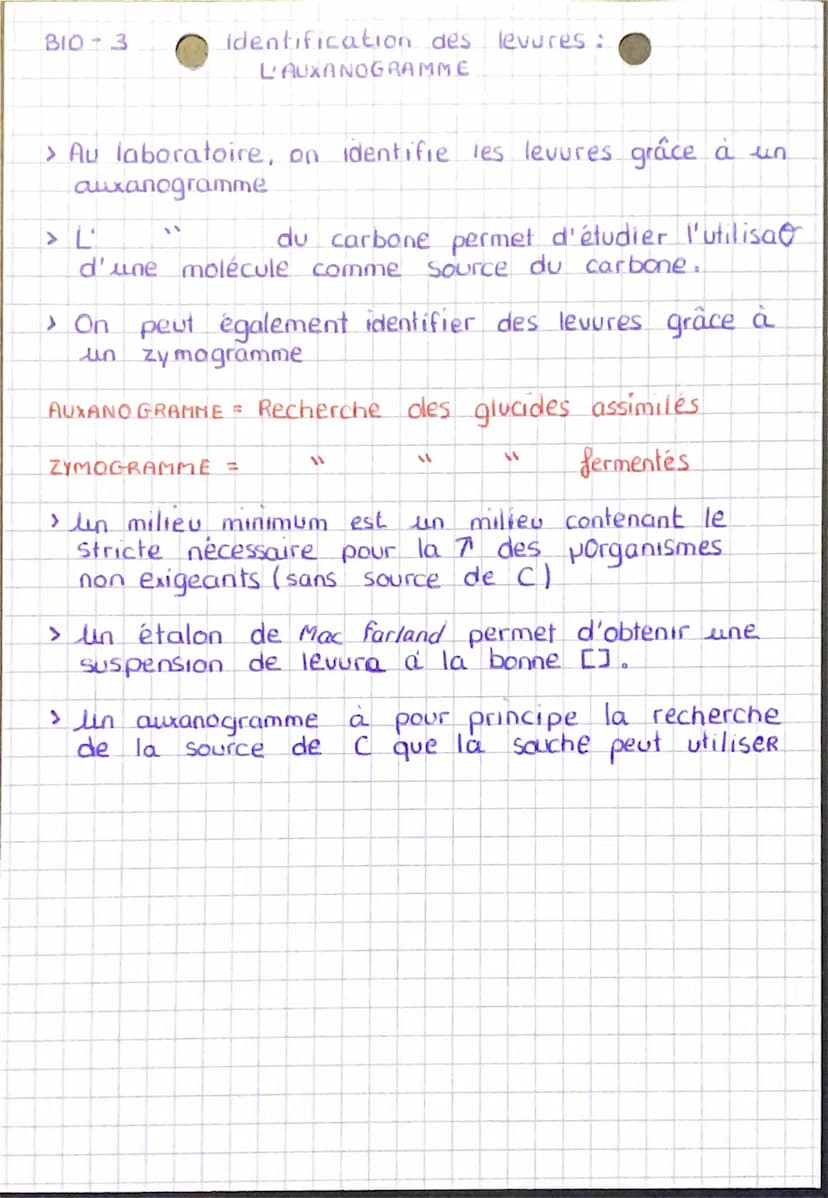 BIO - 3 Identification des levures :
L'AUXANOGRAMME
> Au laboratoire, on identifie les levures grâce à un
auxanogramme
> L' " du carbone permet d'étudier l'utilisaθ
d'une molécule comme source du carbone.
> On peut également identifier des levures grâce à
un zymogramme
AUXANOGRAMME = Recherche des glucides assimilés
ZYMOGRAMME = " " " fermentés
> Un milieu minimum est un milieu contenant le
stricte nécessaire pour la ↗ des µorganismes
non exigeants (sans source de C)
> Un étalon de Mac Farland permet d'obtenir une
suspension de levura à la bonne [].
> Un auxanogramme à pour principe la recherche
de la source de C que la souche peut utiliser